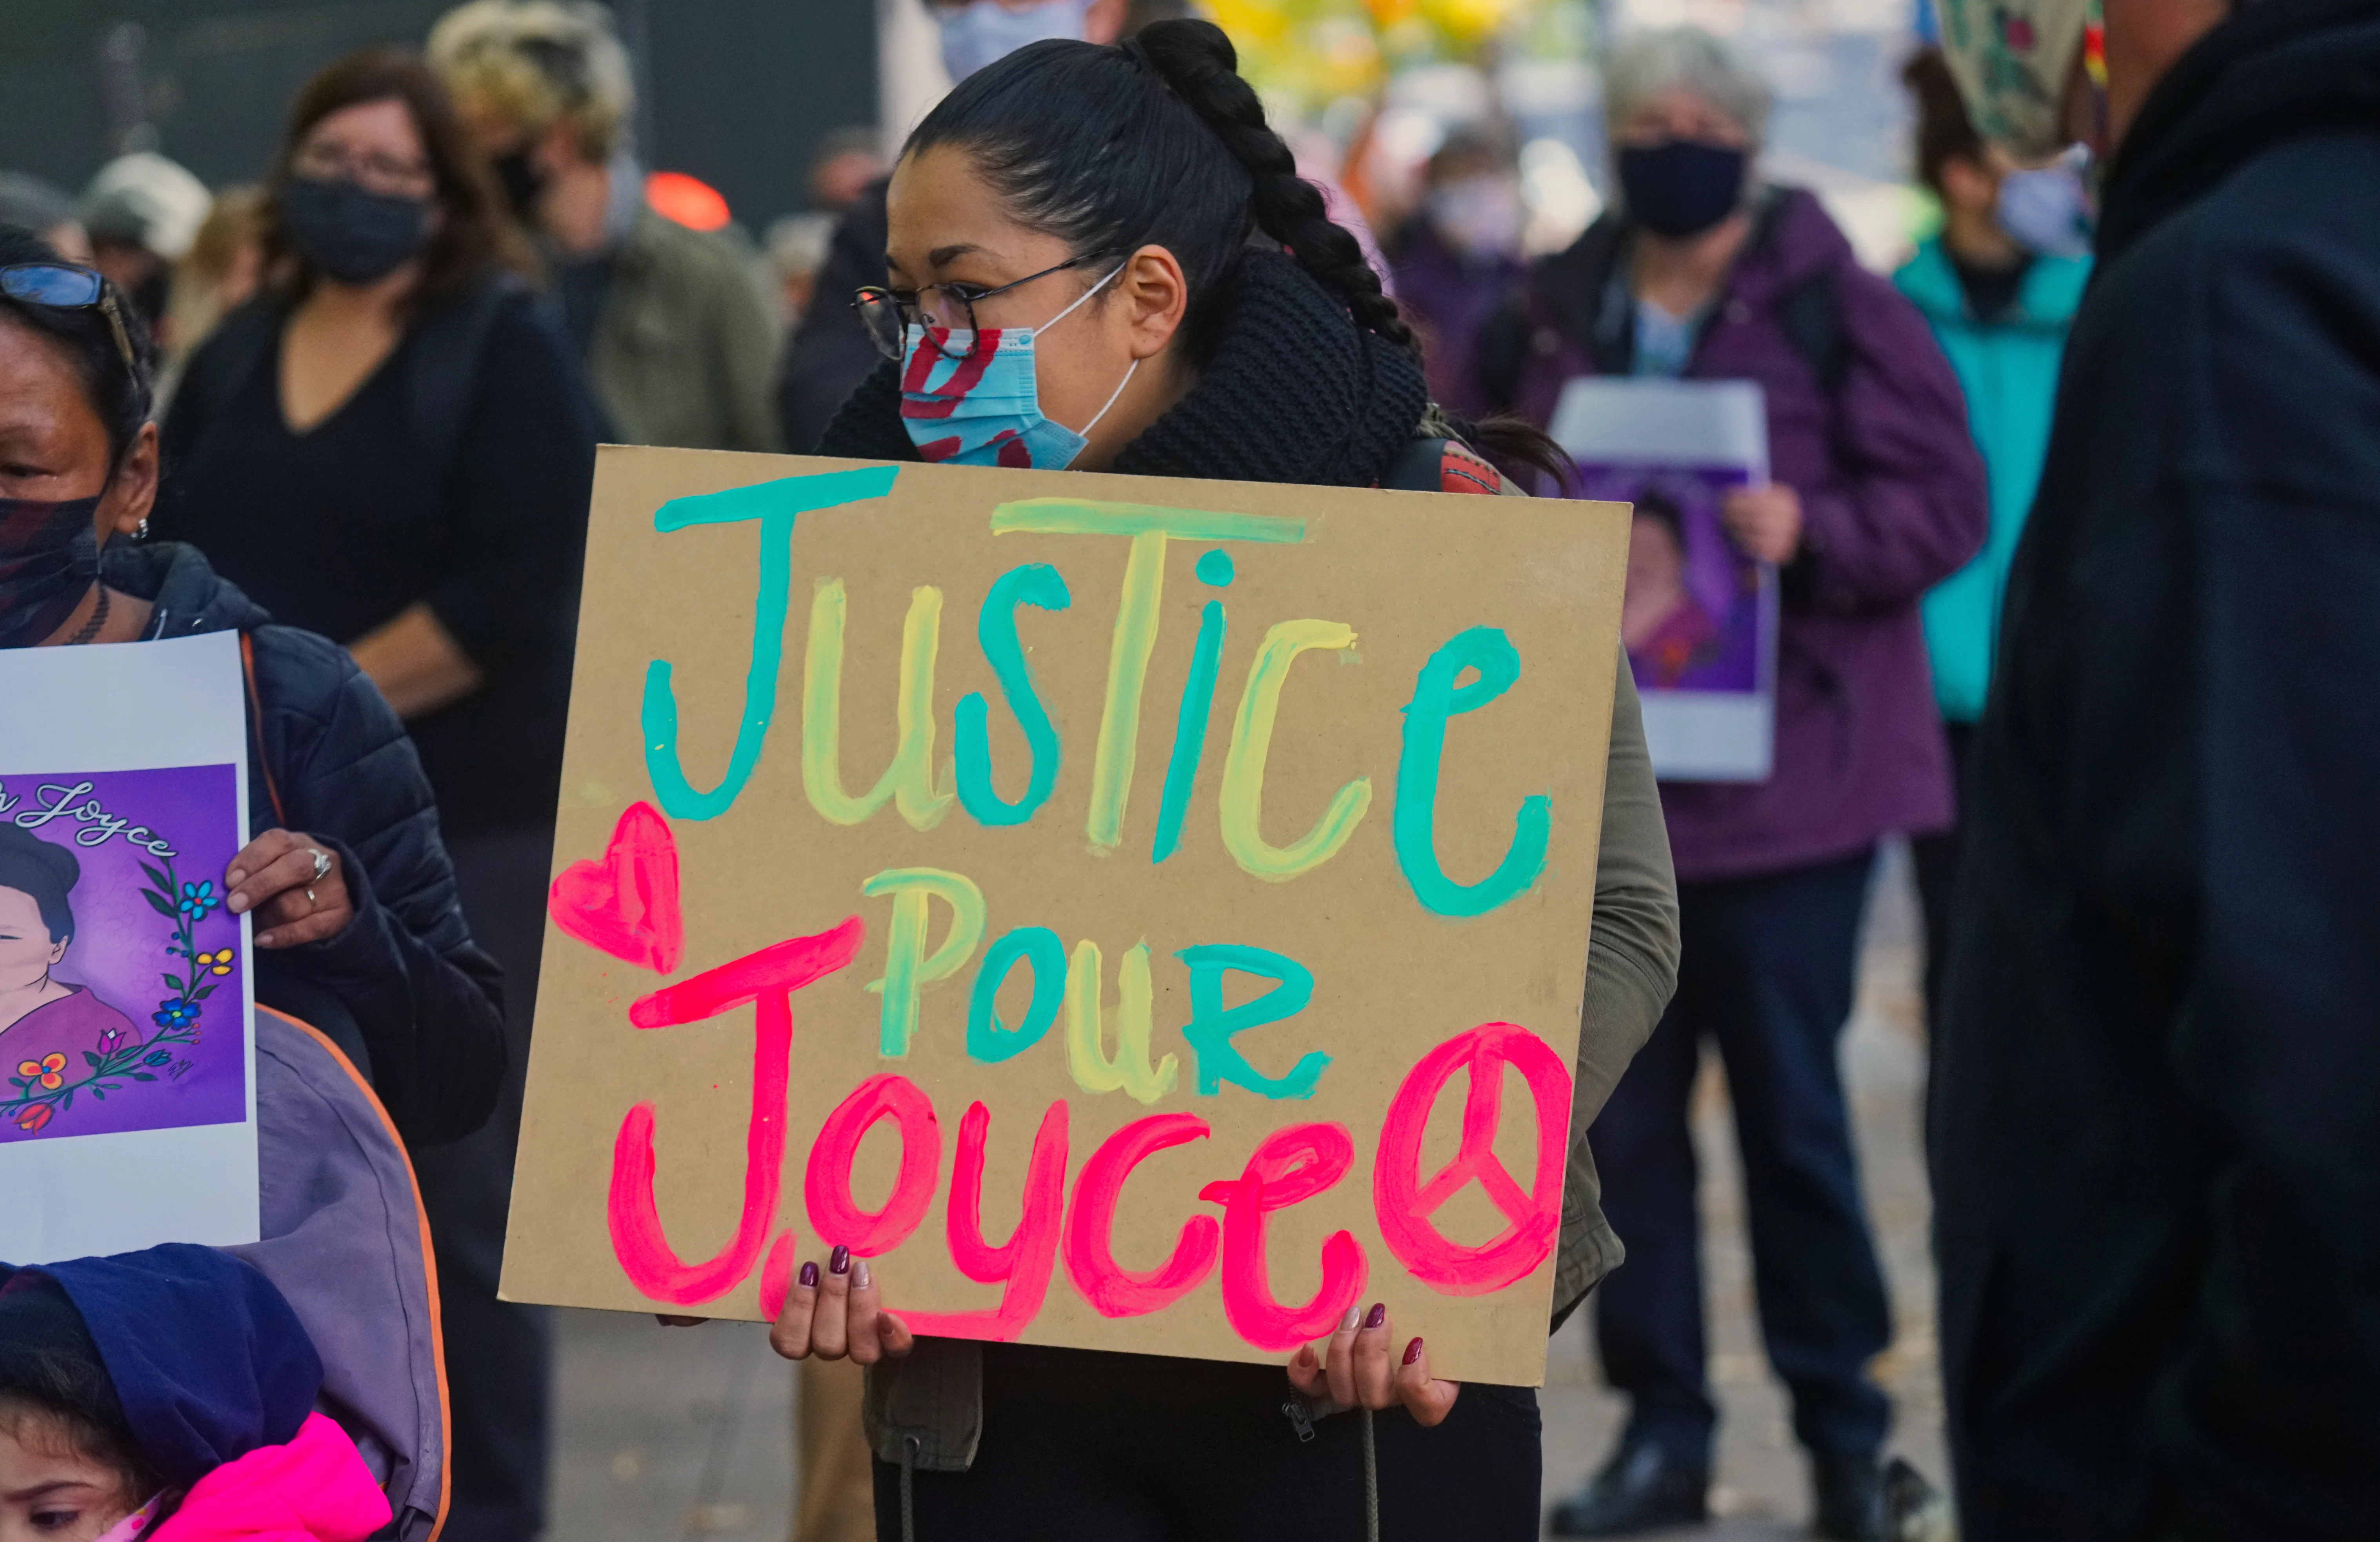 Justice
Pour
Joyce
Joyce